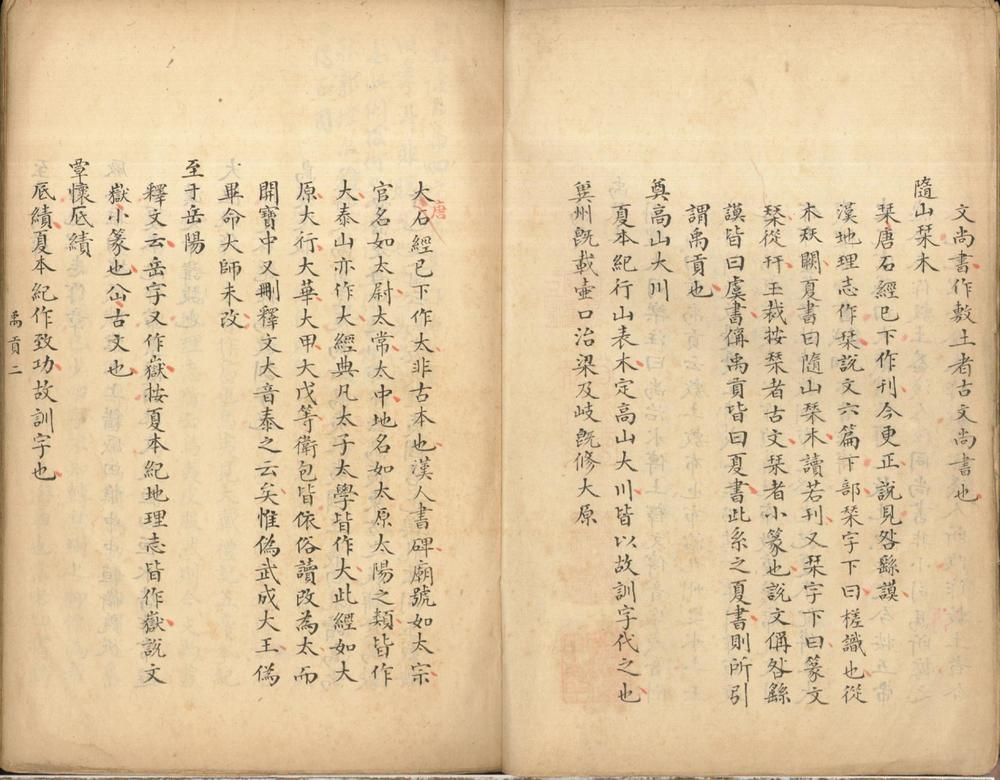 文尚書作敷土者古文尚書也
隨山栞木
栞唐石經已下作刊今更正說見咎繇謨
漢地理志作栞說文六篇下部栞字下曰槎識也從
木㸚闕夏書曰隨山栞木讀若刊又栞字下曰篆文
栞從幵玉裁按栞者古文栞者小篆也說文偁咎繇
謨皆曰虞書偁禹貢皆曰夏書此系之夏書則所引
謂禹貢也
奠高山大川
夏本紀行山表木定高山大川皆以故訓字代之也
兾州旣載壷口治梁及岐旣修大原
大唐石經已下作太非古本也漢人書碑廟號如太宗
官名如太尉太常太中地名如太原太陽之類皆作
大泰山亦作大經典凡太子太學皆作大此經如大
原大行大華大甲大戊等衛包皆依俗讀改為太而
開寶中又刪釋文大音泰之云矣惟偽武成大王偽
畢命大師未改
至于岳陽
釋文云岳字又作嶽按夏本紀地理志皆作嶽說文
嶽小篆也㞣古文也
覃懷厎績
厎績夏本紀作致功故訓字也
禹貢二